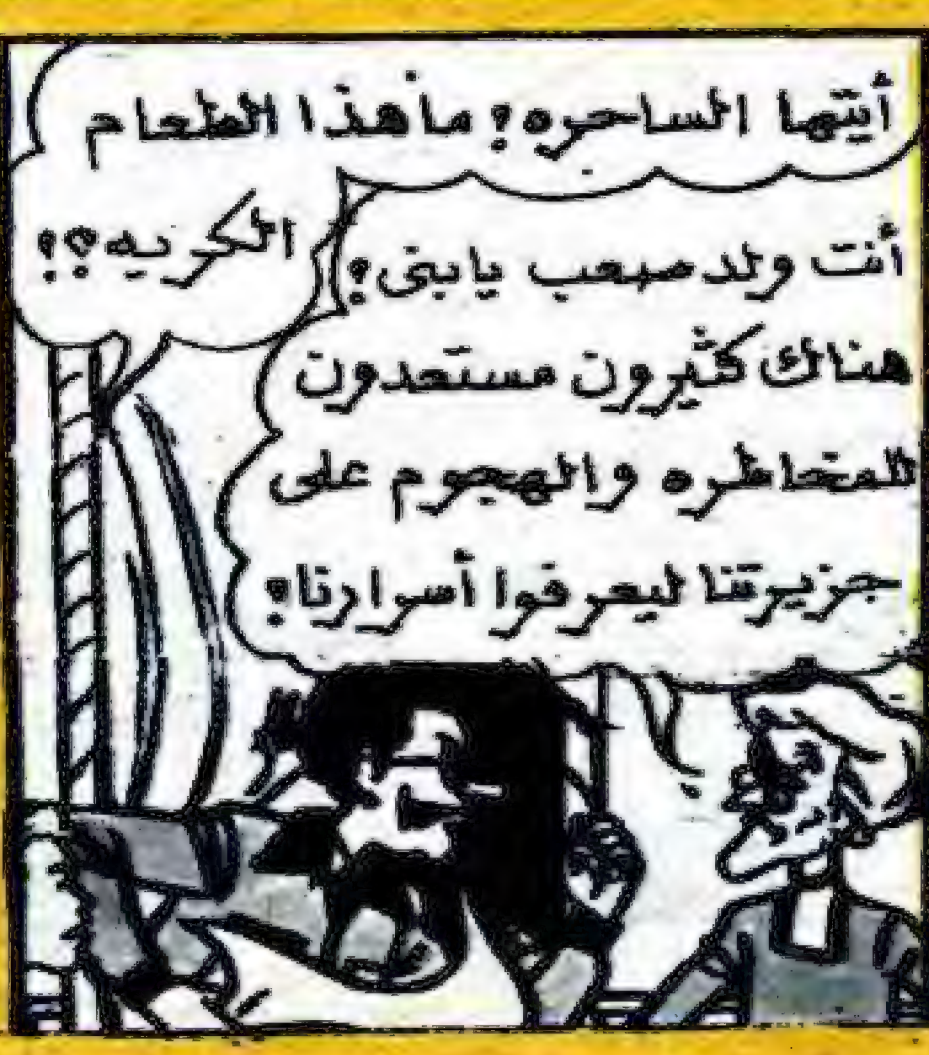 أيتها الساحره؟ ما هذا الطعام
الكريه؟؟!
أنت ولد صعب يابنى؟
هناك كثيرون مستعدون
للمخاطره والهجوم على
جزيرتنا ليعرفوا أسرارنا؟